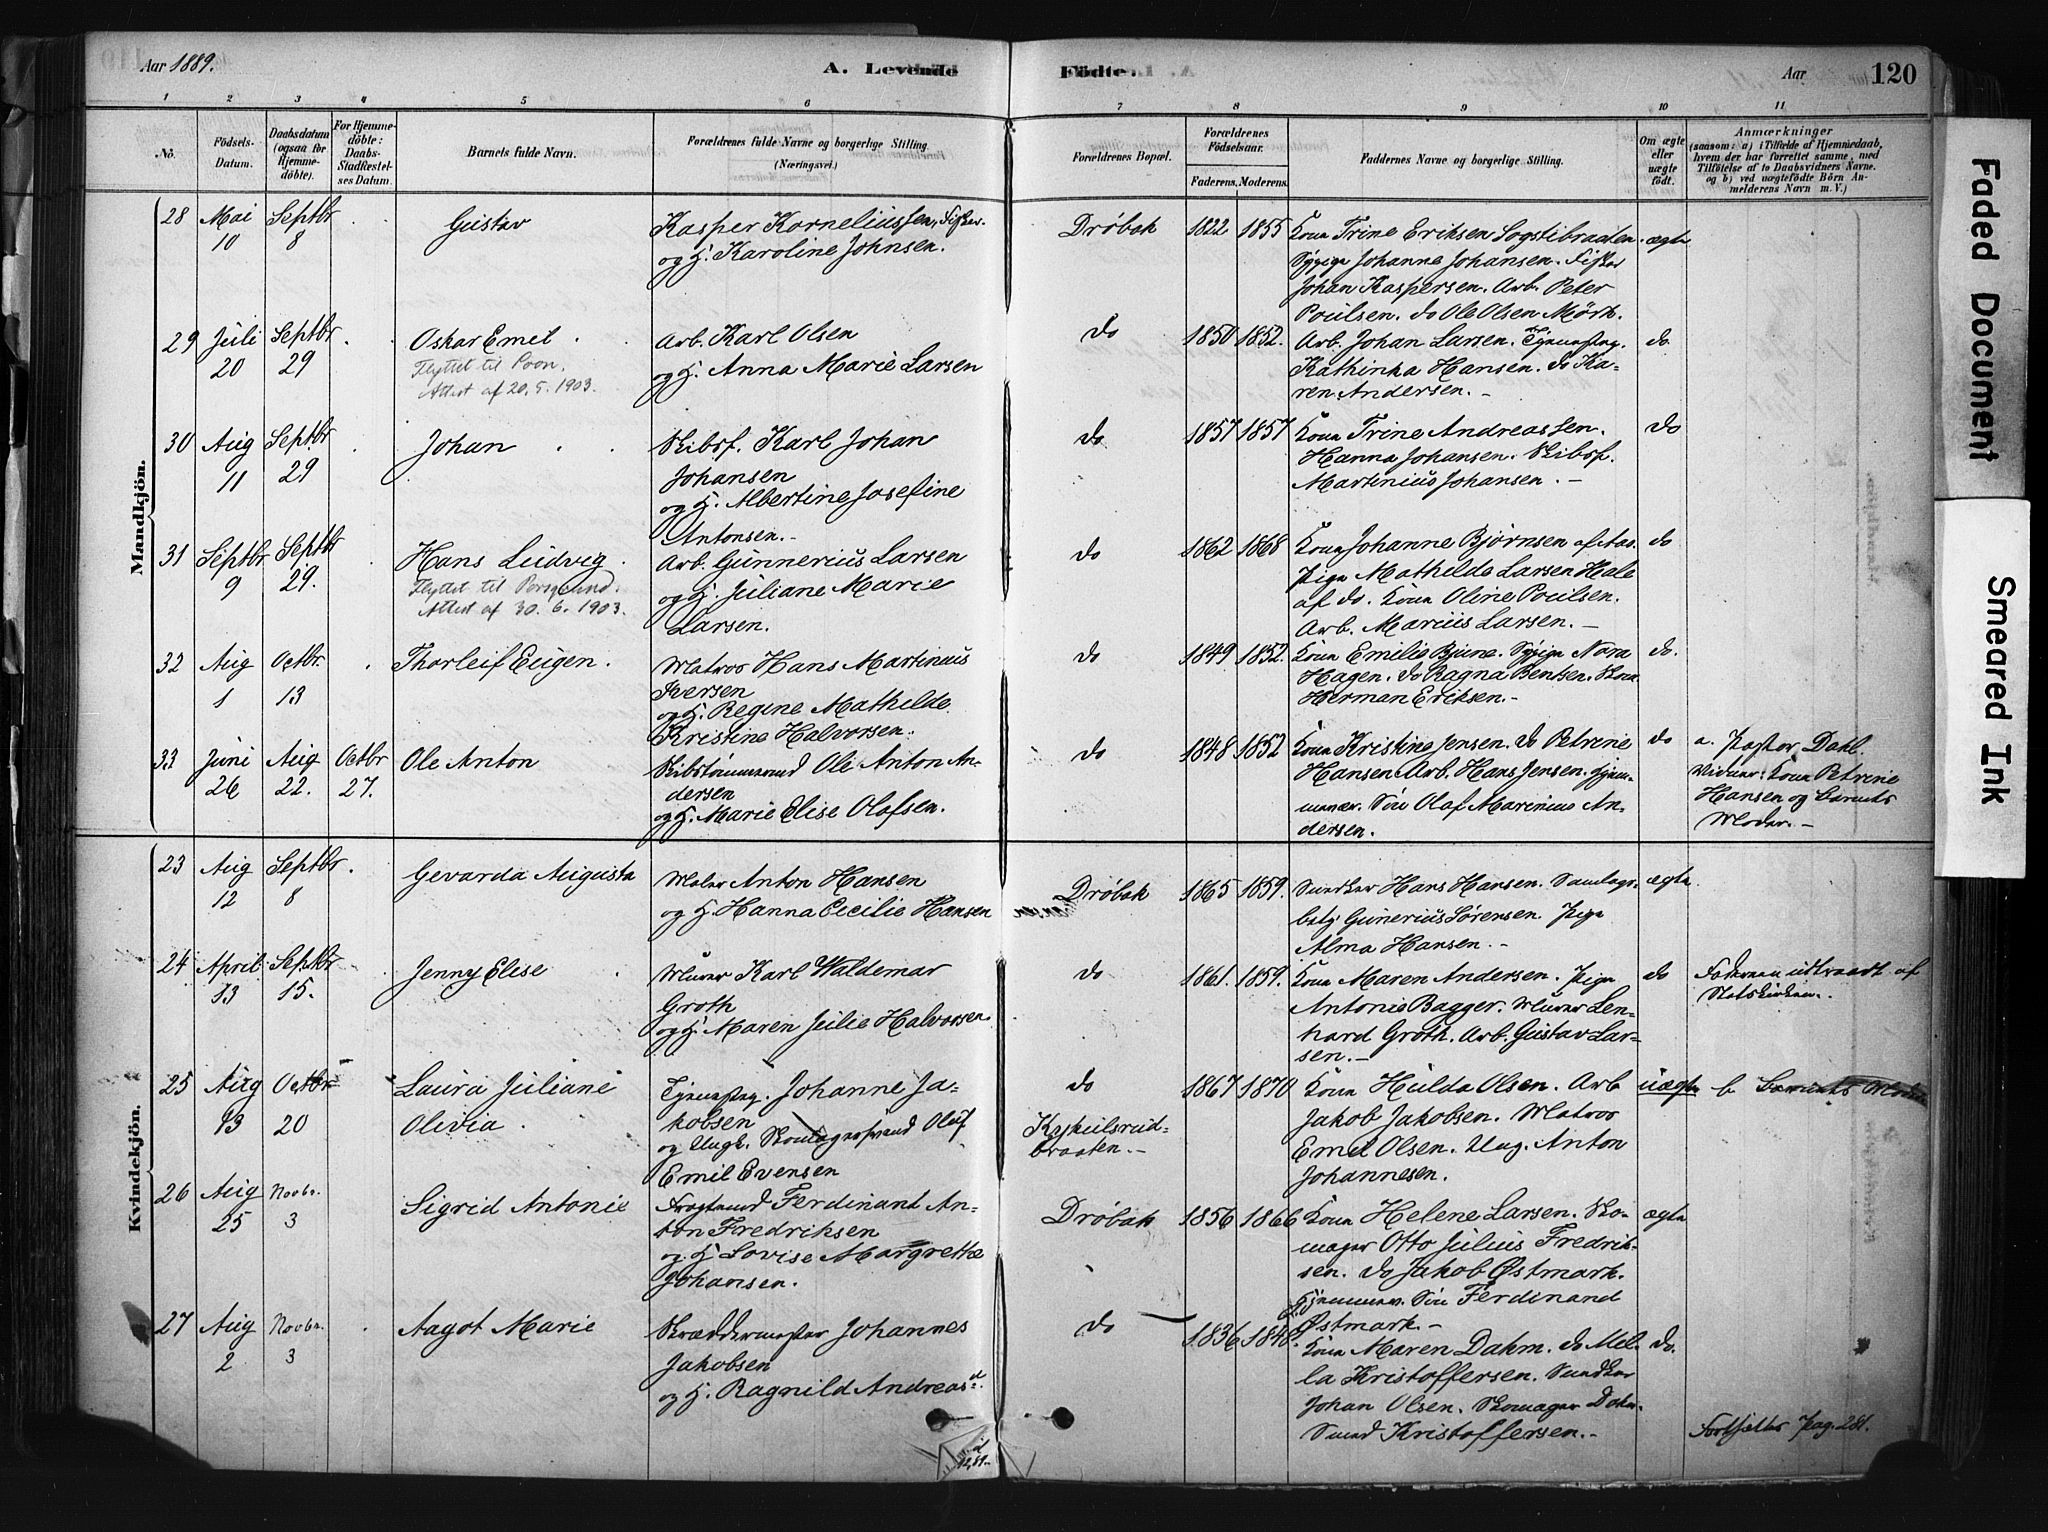 Aar 1889.
A. Levende
Födte.
Aar
120
1 2 3 4 5 6 7 8 9 10 11
No.
Födsels-
Datum.
Daabsdatum
(ogsaa for
Hjemme-
döbte).
For Hjemme-
döbte:
Daabs-
Stadfæstel-
ses Datum.
Barnets fulde Navn.
Forældrenes fulde Navne og borgerlige Stilling.
(Næringsvei.)
Forældrenes Bopæl.
Forældrenes
Födselsaar.
Faderens. Moderens.
Faddernes Navne og borgerlige Stilling.
Om ægte
eller
uægte
födt.
Anmærkninger
(saasom: a) i Tilfælde af Hjemmedaab,
hvem der har forrettet samme, med
Tilföielse af to Daabsvidners Navne.
og b) ved uægtefödte Börn An-
melderens Navn m. V.)
Mandkjön.
28 Mai 10 Septbr 8
Gustav
Kasper Korneliussen, Fisker
og H. Karoline Johnsen.
Drøbak 1822 1855
Kona Trine Eriksen Sogstibraaten.
Sypige Johanne Johansen. Fisker
Johan Kaspersen. Arb. Peter
Poulsen. do Ole Olsen Mørk.
ægte
29 Juli 20 Septbr 29
Oskar Emil
Flyttet til
Attest af 20.5.1903.
Arb. Karl Olsen
og H. Anna Marie Larsen
do 1850 1852.
Arb. Johan Larsen. Tjenestpg.
Kathinka Hansen. do Ka-
ren Andersen. –
do
30 Aug 11 Septbr 29
Johan
Skibsf. Karl Johan
Johansen
og H. Albertine Josefine
Antonsen. –
do 1857 1857
Kona Trine Andreassen.
Hanna Johansen. Skibsf.
Martinius Johansen. –
do
31 Septbr 9 Septbr 29.
Hans Ludvig
Flyttet til Porsgrund.
Attest af 30.6.1903.
Arb. Gunnerius Larsen
og H. Juliane Marie
Larsen.
do 1862 1868
Kona Johanne Bjørnsen af Aas.
Pige Mathilde Larsen Hale
af do. Kona Oline Poulsen.
Arb. Marius Larsen. –
do
32 Aug 1 Octbr. 13
Thorleif Eugen.
Matros Hans Martinius
Iversen
og H. Regine Mathilde
Kristine Halvorsen.
do 1849 1852.
Kona Emilie Bjune. Sypige Nora
Hagen. do Ragna Bentsen. Skom
Herman Eriksen. –
do.
33 Juni 26 Aug 22. Octbr 27.
Ole Anton
Skibstømmermand Ole Anton An-
dersen
og H. Marie Elise Olafsen.
do 1848 1852
Kona Kristine Jensen. do Petrine
Hansen Arb. Hans Jensen. Tjem-
mever. Søn Olaf Marinius An-
dersen.
do
a. Pastor Dahl.
Vidner: Kona Petrine
Hansen og Barnets
Moder. –
Kvindekjön.
23 Aug 12 Septbr. 8
Gevarda Augusta
Maler Anton Hansen
og H. Hanna Cecilie Hansen
Drøbak 1865 1859.
Snedker Hans Hansen. Samlags-
betj. Gunerius Sørensen. Pige
Alma Hansen. –
ægte
24 April 13 Septbr 15.
Jenny Elise
Murer Karl Waldemar
Groth
og H. Maren Julie Halvorsen
do 1861. 1859.
Kona Maren Andersen. Pige
Antonie Bagger. Murer Len-
hard Groth. Arb. Gustav Lar-
sen. –
do
Faderen udtraadt af
Statskirken.
25 Aug 13 Octbr 20
Laura Juliane
Olivia.
Tjenestpg. Johanne Ja-
kobsen
og Ungk. Skomagersvend Olaf
Emil Evensen
do
Kykulsrud-
braaten. –
1867 1870
Kona Hulda Olsen. Arb
Jakob Jakobsen. Matros
Emil Olsen. Ung. Anton
Johannesen.
uægte
b Barnets Moder
26 Aug 25 Novbr. 3
Sigrid Antonie
Fragtmand Ferdinant An-
ton Fredriksen
og H. Lovise Margrethe
Johansen.
Drøbak 1856 1866
Kona Helene Larsen. Sko-
mager Otto Julius Fredrik-
sen. do Jakob Østmark.
Hjemmev. Søn Ferdinand
Østmark. –
ægte
27 Aug 2 Novbr. 3
Aagot Marie
Skræddermester Johannes
Jakobsen
og H. Ragnild Andreasd.
do 1836 1848.
Kona Maren Dahm. do Mil-
la Kristoffersen. Snedker
Johan Olsen. Skomager
Kristoffersen. –
do.
Fortsættes Pag. 281.
Faded Document
Smeared Ink